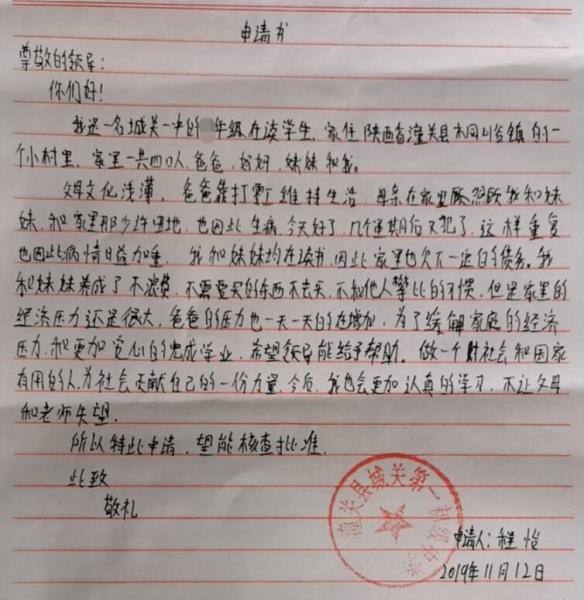 申请书
尊敬的领导:
你们好!
我是一名城关一中的年级在读学生,家住陕西省潼关县桐峪镇的一
个小村里,家里一共四口人,爸爸,妈妈,妹妹和我。
父母文化浅薄,爸爸靠打零工维持生活,母亲在家里照顾我和妹
妹,和家里那少许田地,也因此生病,今天好了,几个星期后又犯了,这样重复
也因此病情日益加重。我和妹妹均在读书,因此家里也欠下一定的债务。我
和妹妹养成了不浪费,不需要买的东西不去买,不和他人攀比的习惯,但是家里的
经济压力还是很大,爸爸的压力也一天一天的在增加,为了缓解家庭的经济
压力,和更加安心的完成学业,希望领导能给予帮助。做一个对社会和国家
有用的人,为社会贡献自己的一份力量,今后,我也会更加认真的学习,不让父母
和老师失望.
所以特此申请,望能核查批准.
此致
敬礼
潼关县城关第一初级中学
申请人:程怡
2019年11月12日